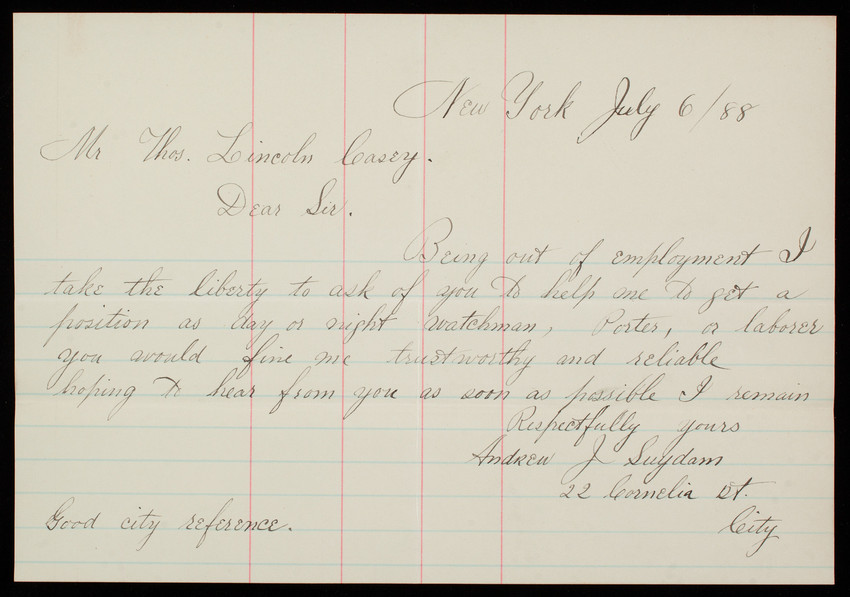 New York July 6/88
Mr Thos. Lincoln Casey.
Dear Sir.
Being out of employment I
take the liberty to ask of you to help me to get a
position as day or night watchman, Porter, or laborer
you would fine me trustworthy and reliable
hoping to hear from you as soon as possible I remain
Respectfully yours
Andrew J Suydam
22 Cornelia St.
City
Good city reference.